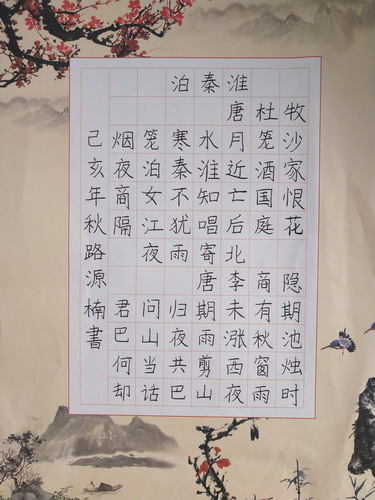 泊秦淮
唐杜牧
烟笼寒水月笼沙
夜泊秦淮近酒家
商女不知亡国恨
隔江犹唱后庭花
夜雨寄北
唐李商隐
君问归期未有期
巴山夜雨涨秋池
何当共剪西窗烛
却话巴山夜雨时
己亥年秋路源楠書